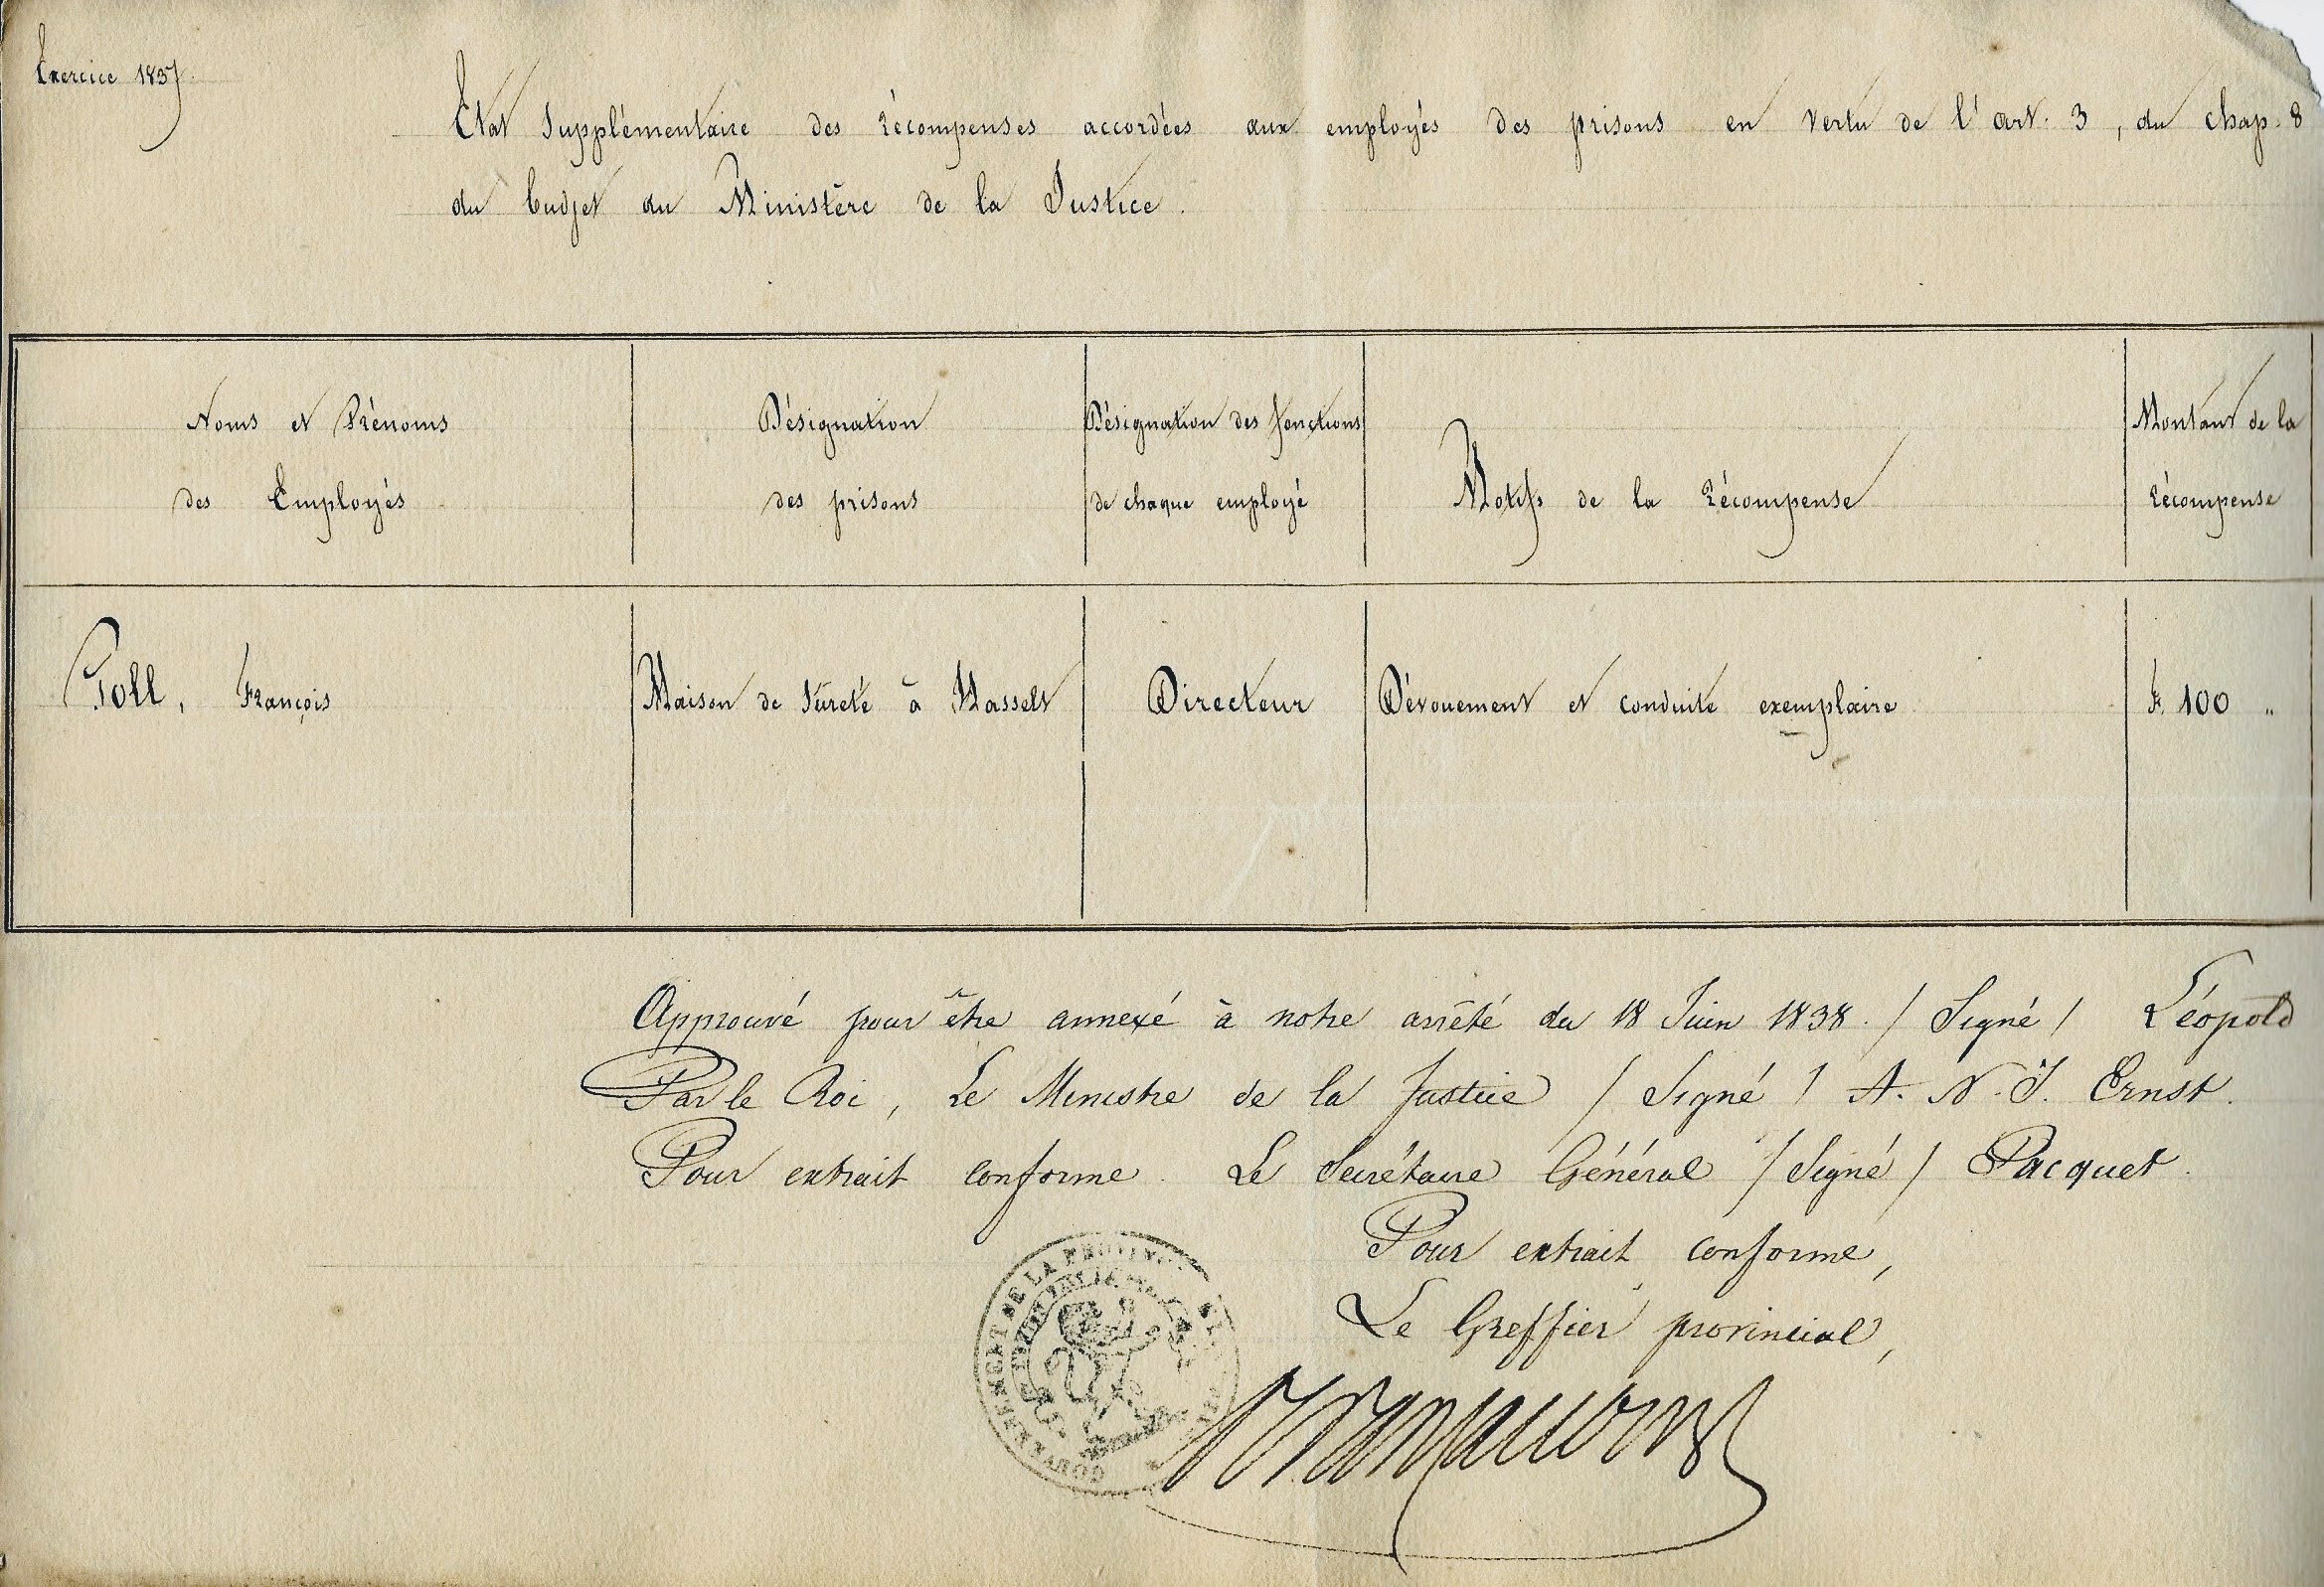 Exercice 1837.
Etat Supplémentaire des récompenses accordées aux employés des prisons en vertu de l'art. 3, du chap. 8
du budjet du Ministère de la Justice.
Noms et Prénoms
des Employés
Désignation
des prisons
Désignation des fonctions
de chaque employé
Motifs de la récompense
Montant de la
récompense
Poll, François
Maison de Sûreté à Hasselt
Directeur
Dévouement et conduite exemplaire
F. 100 "
Approuvé pour être annexé à notre arrêté du 18 Juin 1838. / Signé / Léopold
Par le Roi, Le Ministre de la Justice / Signé / A. N. J. Ernst.
Pour extrait conforme. Le Secrétaire Général / Signé / Pacquet.
Pour extrait conforme,
Le Greffier provincial,
GOUVERNEMENT DE LA PROVINCE